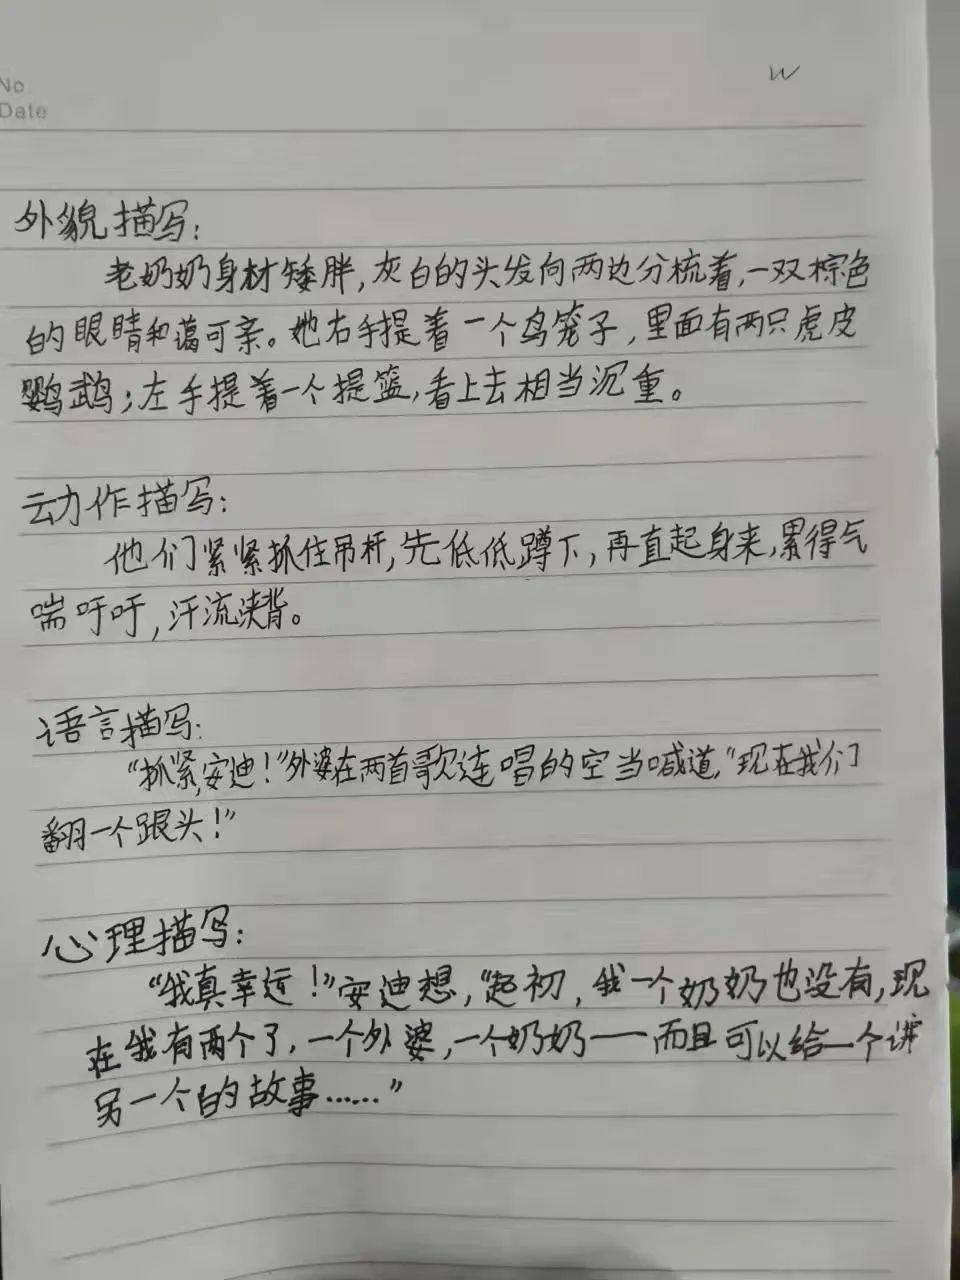 No
Date
W
外貌描写:
老奶奶身材矮胖,灰白的头发向两边分梳着,一双棕色
的眼睛和蔼可亲。她右手提着一个鸟笼子,里面有两只虎皮
鹦鹉;左手提着一个提篮,看上去相当沉重。
动作描写:
他们紧紧抓住吊杆,先低低蹲下,再直起身来,累得气
喘吁吁,汗流浃背。
语言描写:
“抓紧,安迪!”外婆在两首歌连唱的空当喊道,“现在我们
翻一个跟头!”
心理描写:
“我真幸运!”安迪想,“起初,我一个奶奶也没有,现
在我有两个了,一个外婆,一个奶奶——而且可以给一个讲
另一个的故事……”